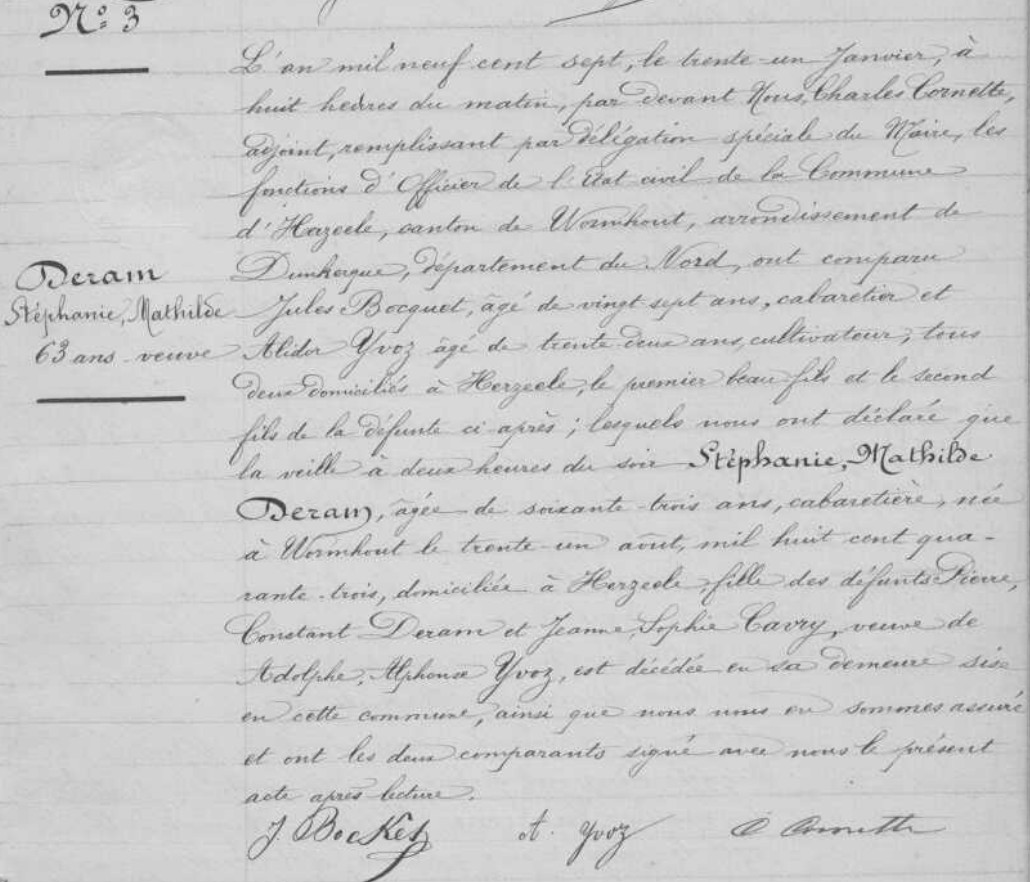 N.o 3
L'an mil neuf cent sept, le trente-un Janvier, à
huit heures du matin, par devant Nous, Charles Cornette,
adjoint, remplissant par délégation spéciale du Maire, les
fonctions d'Officier de l'état civil de la Commune
d'Hazeele, canton de Wormhout, arrondissement de
Dunkerque, département du Nord, ont comparu
Deram
Stéphanie, Mathilde
63 ans - veuve
Jules Bocquet, âgé de vingt sept ans, cabaretier et
Alidor Yvoz âgé de trente-deux ans, cultivateur, tous
deux domiciliés à Herzeele, le premier beau fils et le second
fils de la défunte ci-après ; lesquels nous ont déclaré que
la veille à deux heures du soir Stéphanie, Mathilde
Deram, âgée de soixante-trois ans, cabaretière, née
à Wormhout le trente-un août, mil huit cent qua-
rante-trois, domiciliée à Herzeele, fille des défunts Pierre,
Constant Deram et Jeanne, Sophie Cavry, veuve de
Adolphe, Alphonse Yvoz, est décédée en sa demeure sise
en cette commune, ainsi que nous nous en sommes assuré
et ont les deux comparants signé avec nous le présent
acte après lecture.
J. Bocket A. Yvoz C Cornette